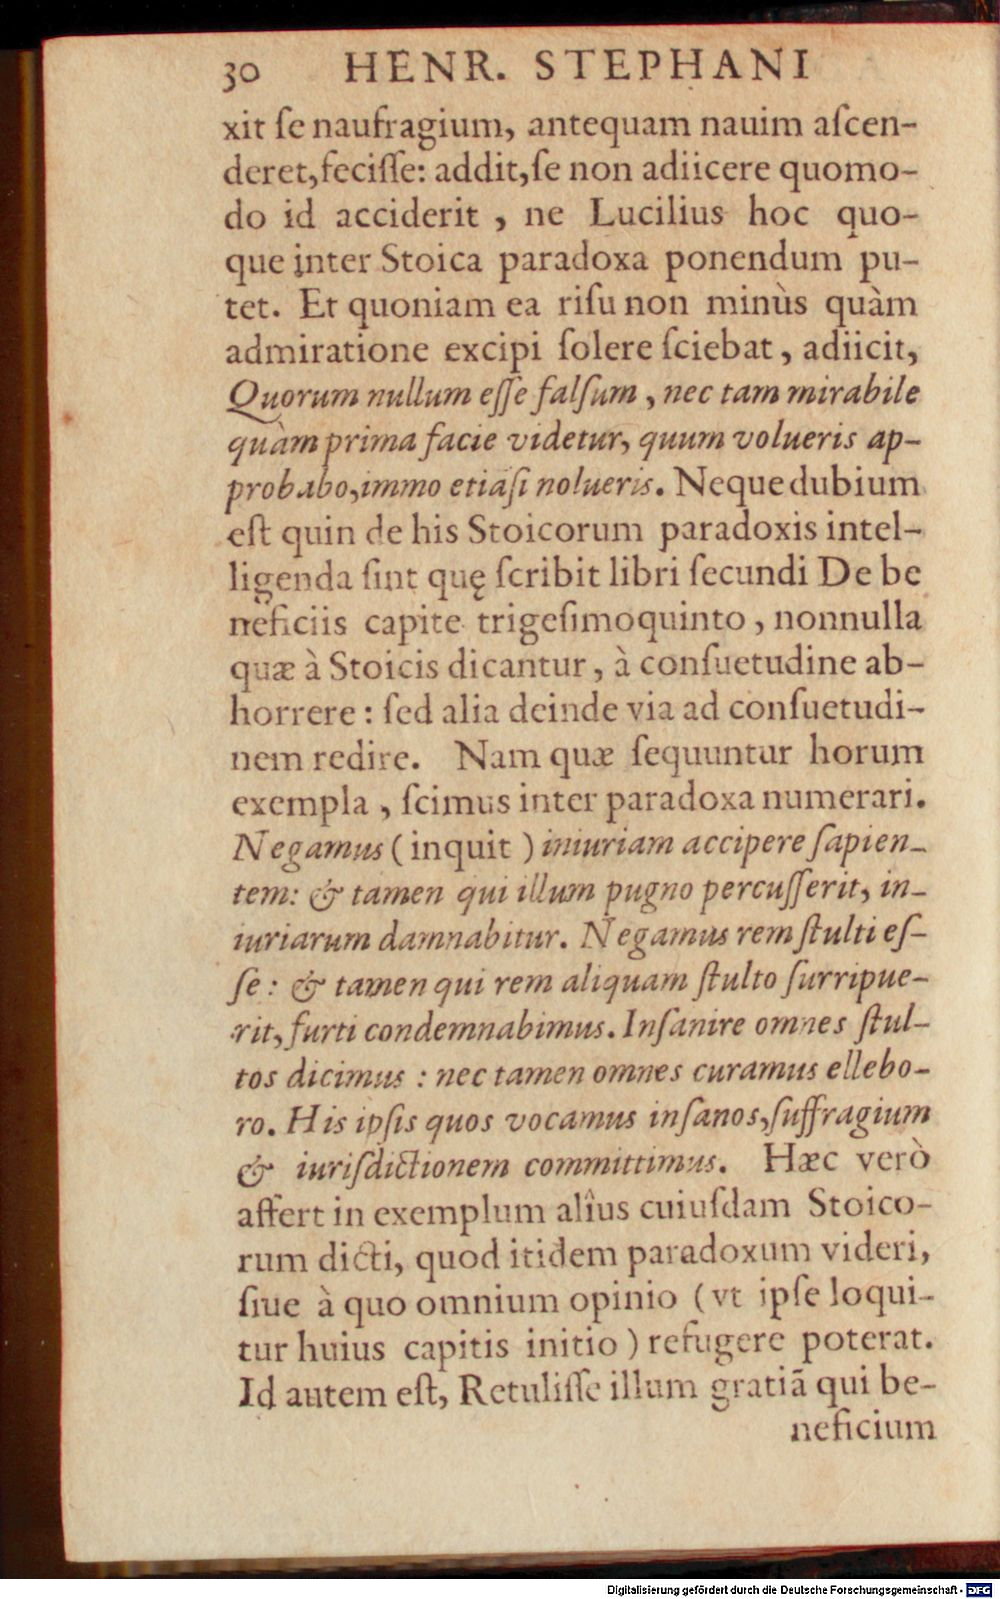 30 HENR. STEPHANI
xit ſe naufragium, antequam nauim aſcen-
deret, feciſſe: addit, ſe non adiicere quomo-
do id acciderit , ne Lucilius hoc quo-
que inter Stoica paradoxa ponendum pu-
tet. Et quoniam ea riſu non minùs quàm
admiratione excipi ſolere ſciebat , adiicit,
Quorum nullum eſſe falſum , nec tam mirabile
quàm prima facie videtur, quum volueris ap-
probabo, immo etiãſi nolueris. Neque dubium
eſt quin de his Stoicorum paradoxis intel-
ligenda ſint quę ſcribit libri ſecundi De be
neficiis capite trigeſimoquinto , nonnulla
quæ à Stoicis dicantur , à conſuetudine ab-
horrere : ſed alia deinde via ad conſuetudi-
nem redire. Nam quæ ſequuntur horum
exempla , ſcimus inter paradoxa numerari.
Negamus ( inquit ) iniuriam accipere ſapien-
tem: & tamen qui illum pugno percuſſerit, in-
iuriarum damnabitur. Negamus rem ſtulti eſ-
ſe : & tamen qui rem aliquam ſtulto ſurripue-
rit, furti condemnabimus. Inſanire omnes ſtul-
tos dicimus : nec tamen omnes curamus ellebo-
ro. His ipſis quos vocamus inſanos, ſuffragium
& iuriſdictionem committimus. Hæc verò
affert in exemplum alîus cuiuſdam Stoico-
rum dicti, quod itidem paradoxum videri,
ſiue à quo omnium opinio ( vt ipſe loqui-
tur huius capitis initio ) refugere poterat.
Id autem eſt, Retuliſſe illum gratiã qui be-
neficium
Digitalisierung gefördert durch die Deutsche Forschungsgemeinschaft - DFG